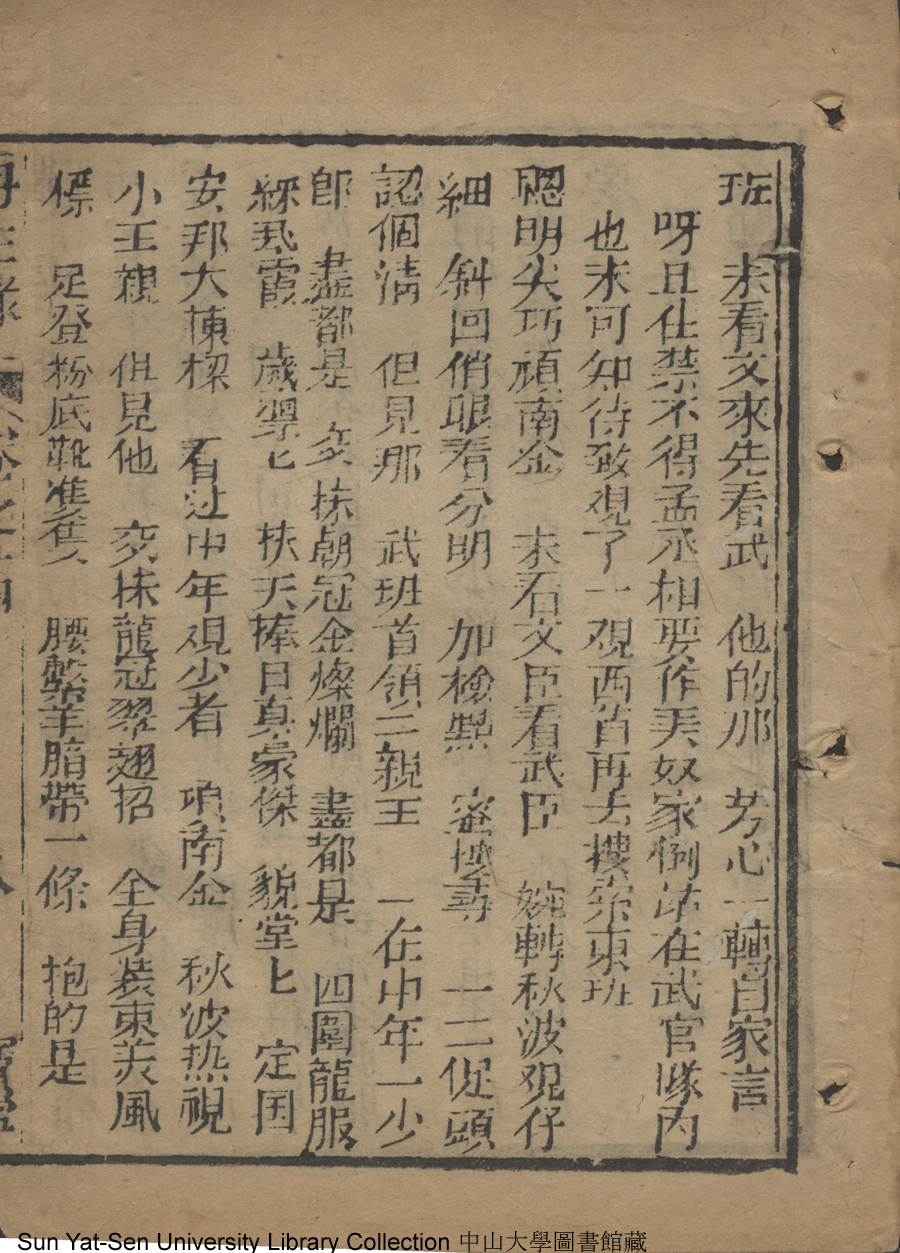 班　未看文來先看武　他的那　芳心一轉自家言
呀且住禁不得孟丞相要作美奴家倒站在武官隊內
也未可知待致覌了一覌西首再去摟索東班
聰明尖巧項南金　未看文臣看武臣　婉轉秋波覌仔
細　斜回俏眼看分明　加檢點　密搜尋　一二從頭
認個清　但見那　武班首領三親王　一在中年一少
郎　盡都是　交抹朝冠金燦爛　盡都是　四圍龍服
綵飛霞　歲翠匕　扶天捧日真豪傑　貌堂匕　定国
安邦大棟樑　看过中年覌少者　項南金　秋波热視
小王親　但見他　交抹龍冠翠翅招　全身装束美風
標　足登粉底靴隻隻　腰繫羊脂帶一條　抱的是
再生緣　卷之十四　八
Sun Yat-Sen University Library Collection 中山大學圖書館藏